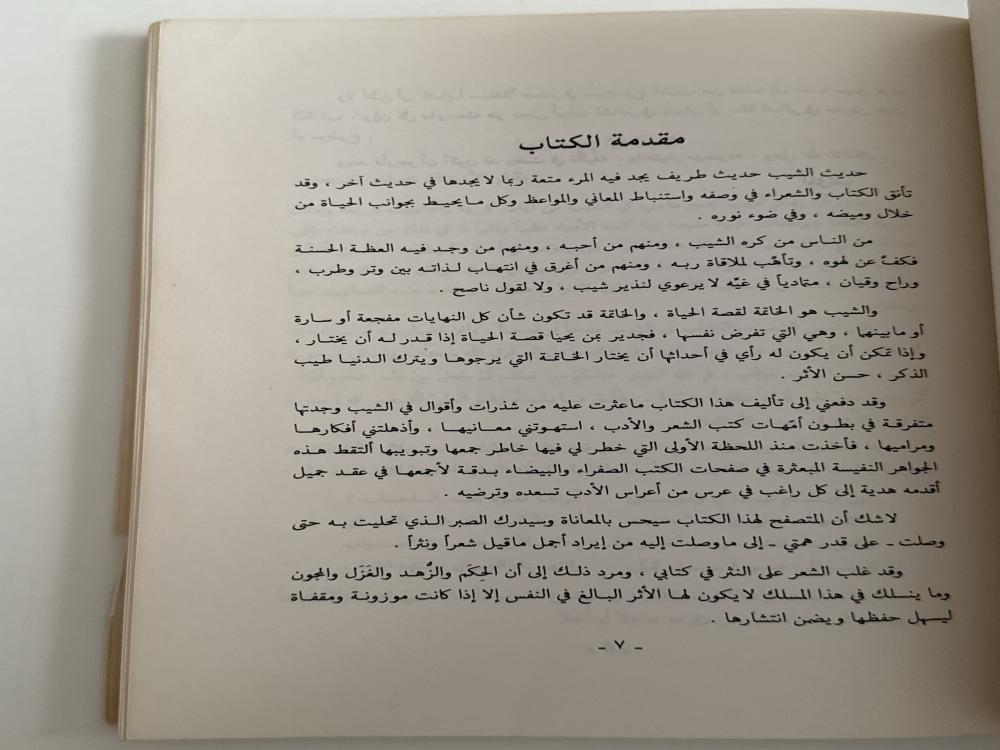 مقدمة الكتاب
حديث الشيب حديث طريف يجد فيه المرء متعة ربما لا يجدها في حديث آخر ، وقد
تأنق الكتاب والشعراء في وصفه واستنباط المعاني والمواعظ وكل ما يحيط بجوانب الحياة من
خلال وميضه ، وفي ضوء نوره .
من الناس من كره الشيب ، ومنهم من أحبه ، ومنهم من وجد فيه العظة الحسنة
فكفّ عن لهوه ، وتأهّب لملاقاة ربه ، ومنهم من أغرق في انتهاب لذاته بين وتر وطرب ،
وراح وقيان ، متمادياً في غيّه لا يرعوي لنذير شيب ، ولا لقول ناصح .
والشيب هو الخاتمة لقصة الحياة ، والخاتمة قد تكون شأن كل النهايات مفجعة أو سارة
أو مابينهما ، وهي التي تفرض نفسها ، فجدير بمن يحيا قصة الحياة إذا قدر له أن يختار ،
وإذا تمكن أن يكون له رأي في أحداثها أن يختار الخاتمة التي يرجوها ويترك الدنيا طيب
الذكر ، حسن الأثر .
وقد دفعني إلى تأليف هذا الكتاب ماعثرت عليه من شذرات وأقوال في الشيب وجدتها
متفرقة في بطون أمّهات كتب الشعر والأدب ، استهوتني معانيها ، وأذهلتني أفكارها
ومراميها ، فأخذت منذ اللحظة الأولى التي خطر لي فيها خاطر جمعها وتبويبها ألتقط هذه
الجواهر النفيسة المبعثرة في صفحات الكتب الصفراء والبيضاء بدقة لأجمعها في عقد جميل
أقدمه هدية إلى كل راغب في عرس من أعراس الأدب تسعده وترضيه .
لاشك أن المتصفح لهذا الكتاب سيحس بالمعاناة وسيدرك الصبر الذي تحليت به حتى
وصلت ـ على قدر همتي ـ إلى ماوصلت إليه من إيراد أجمل ماقيل شعراً ونثراً .
وقد غلب الشعر على النثر في كتابي ، ومرد ذلك إلى أن الحِكَم والزُّهد والغَزَل والمجون
وما ينسلك في هذا المسلك لا يكون لها الأثر البالغ في النفس إلا إذا كانت موزونة ومقفاة
ليسهل حفظها ويضمن انتشارها .
ـ ٧ ـ